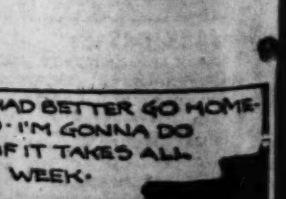 HAD BETTER GO HOME-
I'M GONNA DO
IF IT TAKES ALL
WEEK.